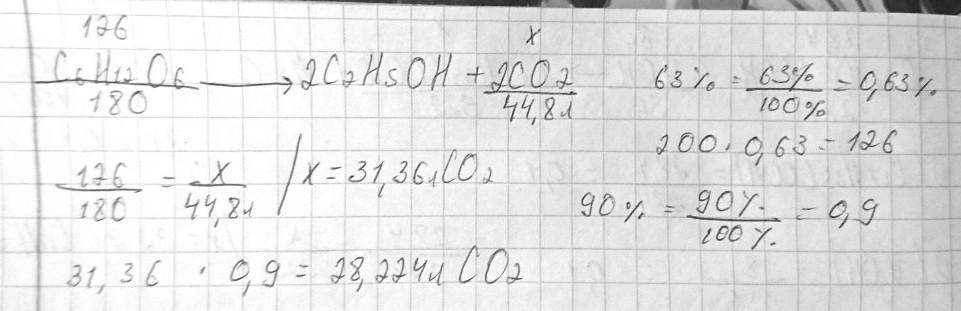 126 x
C6H12O6 / 180 ⟶ 2C2H5OH + 2CO2 / 44,8л 63% = 63% / 100% = 0,63%
200 · 0,63 = 126
126 / 180 = x / 44,8л / x = 31,36л CO2
90% = 90% / 100% = 0,9
31,36 · 0,9 = 28,224л CO2